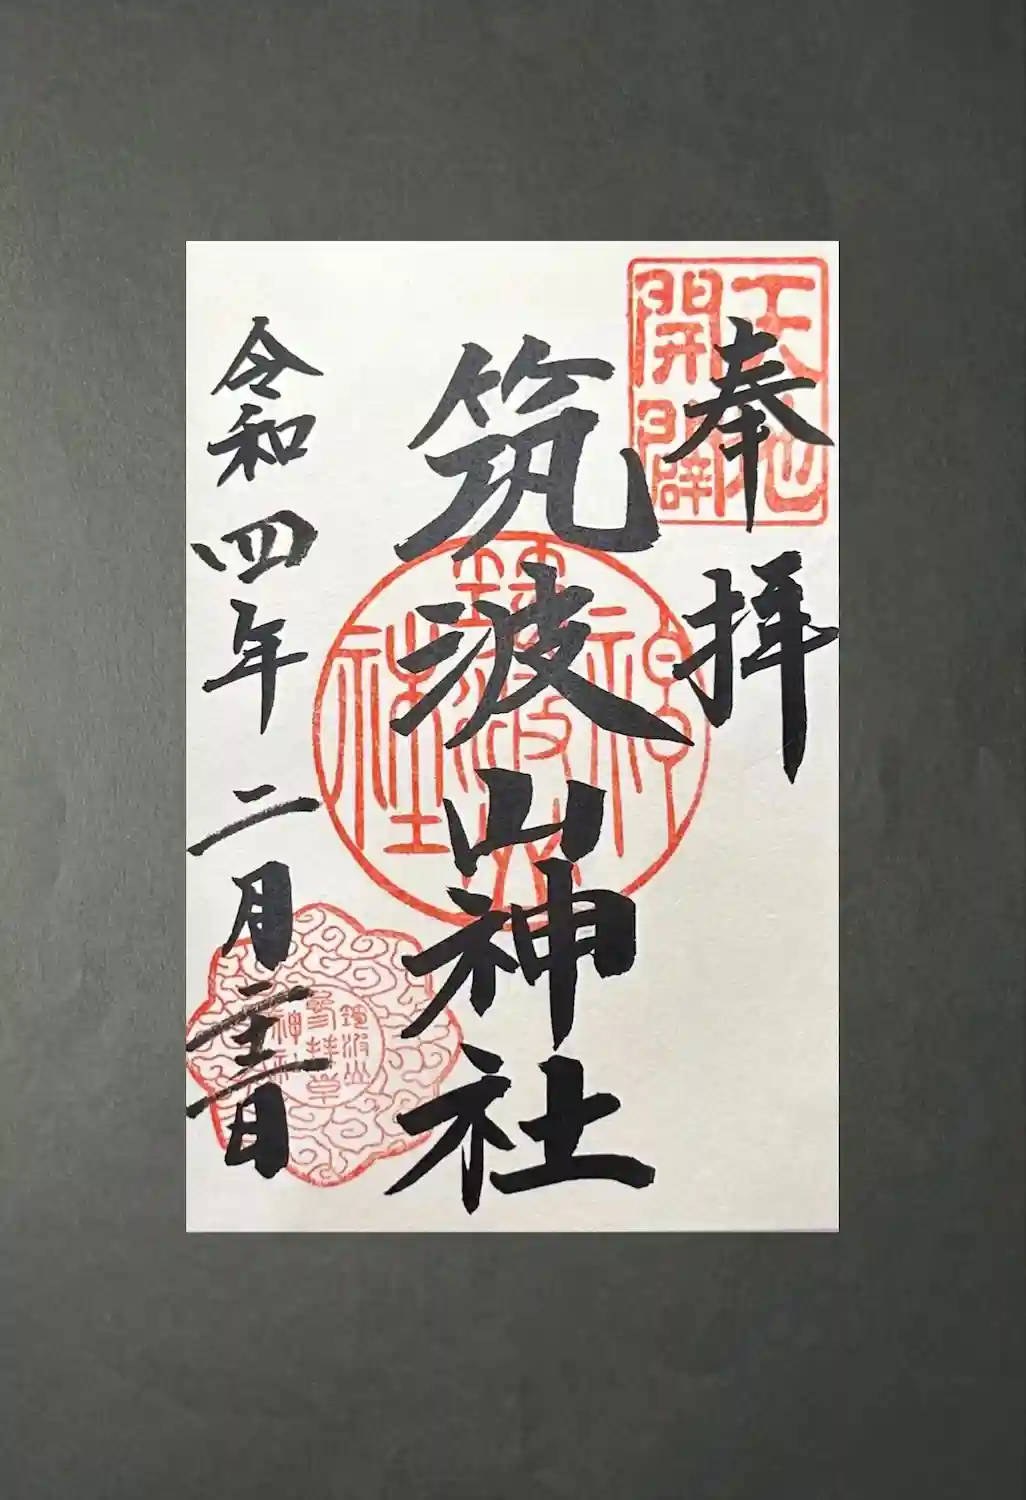 奉拝
天地
開闢
筑波山神社
筑波山
神社
令和四年二月二十三日
筑波山
参拝章
神社